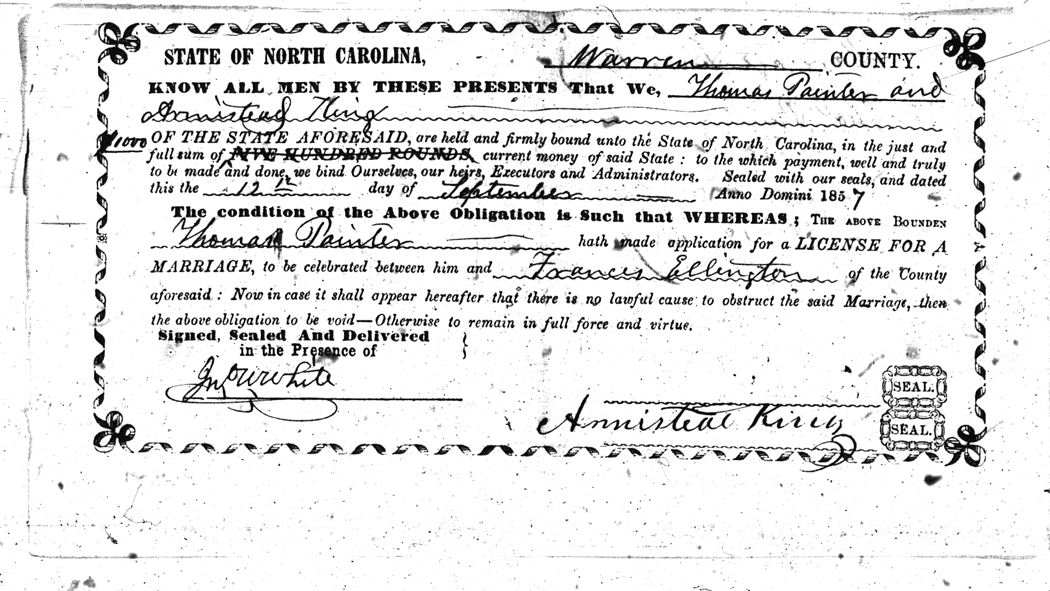 STATE OF NORTH CAROLINA, Warren COUNTY.
KNOW ALL MEN BY THESE PRESENTS That We, Thomas Painter and
Armistead King
$1000 OF THE STATE AFORESAID, are held and firmly bound unto the State of North Carolina, in the just and
full sum of FIVE HUNDRED POUNDS current money of said State : to the which payment, well and truly
to be made and done, we bind Ourselves, our heirs, Executors and Administrators. Sealed with our seals, and dated
this the 12th day of September Anno Domini 1857
The condition of the Above Obligation is Such that WHEREAS ; THE ABOVE BOUNDEN
Thomas Painter hath made application for a LICENSE FOR A
MARRIAGE, to be celebrated between him and Frances Ellington of the County
aforesaid : Now in case it shall appear hereafter that there is no lawful cause to obstruct the said Marriage, then
the above obligation to be void—Otherwise to remain in full force and virtue.
Signed, Sealed And Delivered
in the Presence of
Jno W White
SEAL.
Armistead King SEAL.